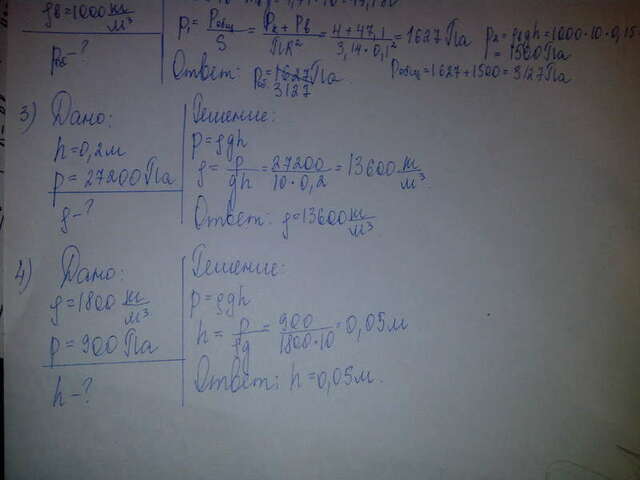 ρв=1000 кг/м³
p₁ = Pобщ/S = (Pк + Pв)/(ПR²) = (4 + 47,1)/(3,14·0,1²) = 1627 Па p₂ = ρвgh = 1000·10·0,15
= 1500 Па
pоб - ?
Ответ: pоб = 1627 Па. pобщ = 1627 + 1500 = 3127 Па
3127
3) Дано:
h = 0,2 м
p = 27200 Па
ρ - ?
Решение:
p = ρgh
ρ = p/gh = 27200/(10·0,2) = 13600 кг/м³.
Ответ: ρ = 13600 кг/м³.
4) Дано:
ρ = 1800 кг/м³
p = 900 Па
h - ?
Решение:
p = ρgh
h = p/ρg = 900/(1800·10) = 0,05 м
Ответ: h = 0,05 м.